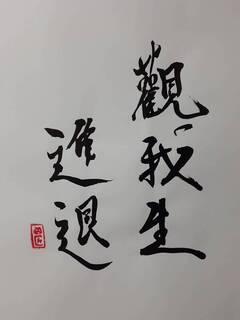 觀我生
進退